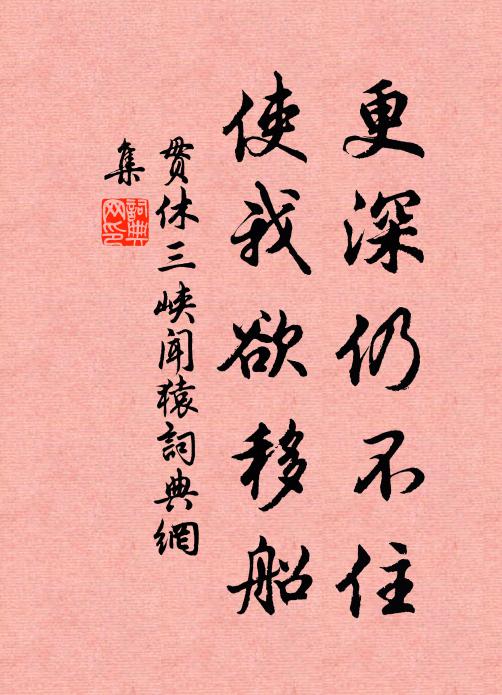 更深仍不住
使我欲移船
贯休三峡闻猿詞典網
集
詞典
网印